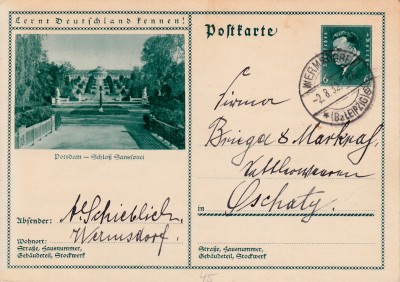 Lernt Deutschland kennen!
Potsdam – Schloß Sanssouci
Absender: A. Schieblich,
Wermsdorf.
Wohnort:
Straße, Hausnummer,
Gebäudeteil, Stockwerk
Postkarte
6
WERMSDORF
-2.8.3
* (Bz LEIPZIG)
Firma
& Markgraf,
in Oschatz.
Straße, Hausnummer,
Gebäudeteil, Stockwerk
45